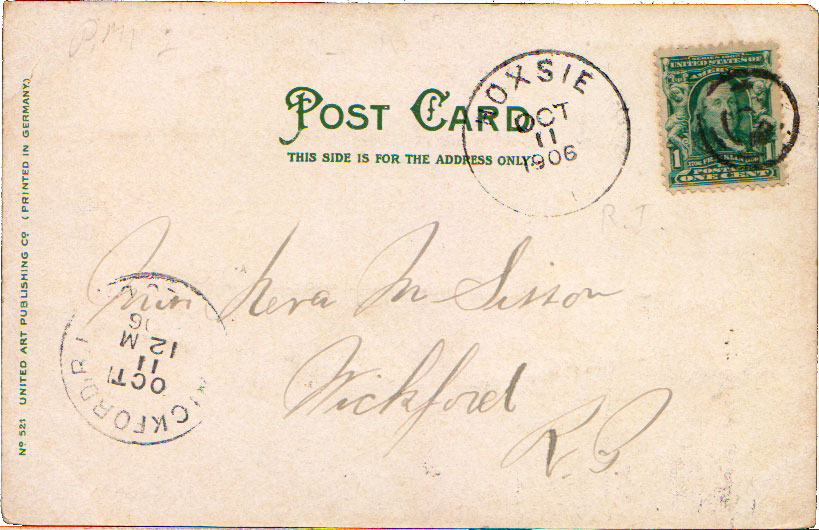 POST CARD
THIS SIDE IS FOR THE ADDRESS ONLY.
NOXSIE
OCT
11
1906
SERIES 1902
UNITED STATES OF
AMERICA
1 1
POSTAGE
ONE CENT
R.I.
Miss Vera M Sisson
Wickford
R.I.
WICKFORD R I
OCT 11
12 M
06
No 521 UNITED ART PUBLISHING Co (PRINTED IN GERMANY.)